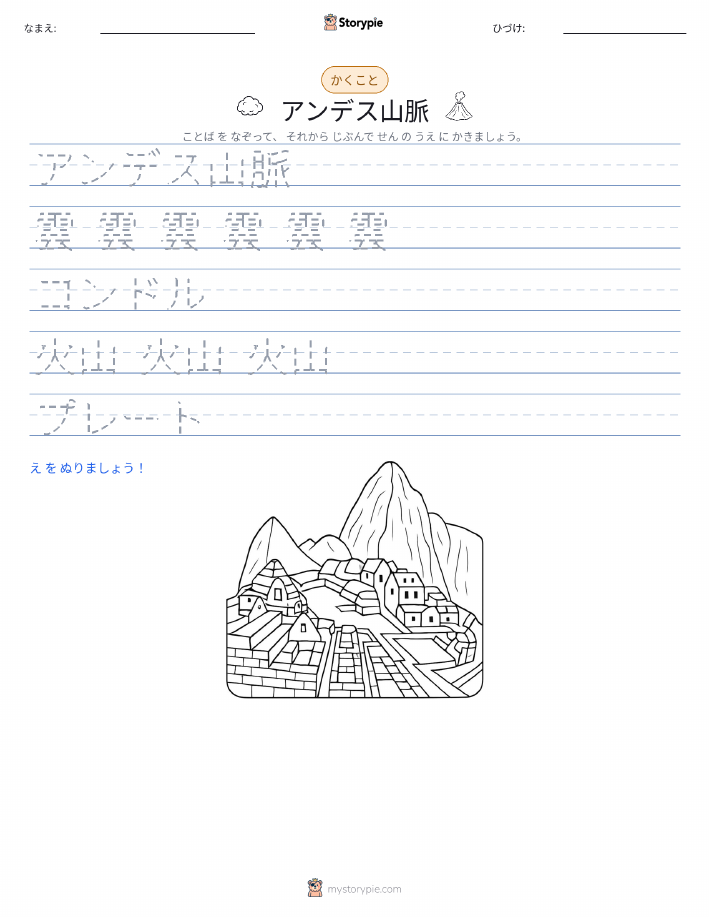 なまえ:
Storypie
ひづけ:
かくこと
アンデス山脈
ことば を なぞって、 それから じぶんで せん の うえ に かきましょう。
アンデス山脈
雲 雲 雲 雲 雲 雲
コンドル
火山 火山 火山
プレート
え を ぬりましょう！
mystorypie.com